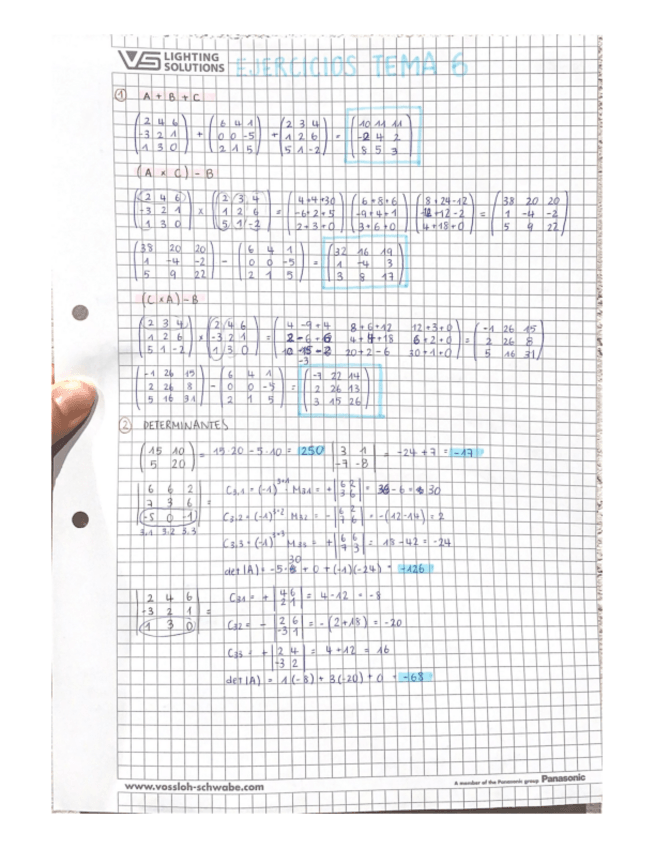 VS LIGHTING SOLUTIONS EJERCICIOS TEMA 6
① A + B + C
(2 4 6 / -3 2 1 / 1 3 0) + (6 4 1 / 0 0 -5 / 2 1 5) + (2 3 4 / 1 2 6 / 5 1 -2) = (10 11 11 / -2 4 2 / 8 5 3)
(A × C) - B
(2 4 6 / -3 2 1 / 1 3 0) × (2 3 4 / 1 2 6 / 5 1 -2) = (4+4+30 / -6+2+5 / 2+3+0) (6+8+6 / -9+4+1 / 3+6+0) (8+24-12 / -12+12-2 / 4+18+0) = (38 20 20 / 1 -4 -2 / 5 9 22)
(38 20 20 / 1 -4 -2 / 5 9 22) - (6 4 1 / 0 0 -5 / 2 1 5) = (32 16 19 / 1 -4 3 / 3 8 17)
(C × A) - B
(2 3 4 / 1 2 6 / 5 1 -2) × (2 4 6 / -3 2 1 / 1 3 0) = (4-9+4 8+6+12 12+3+0 / 2-6+6 4+4+18 6+2+0 / 10 -3 -2 20+2-6 30+1+0) = (-1 26 15 / 2 26 8 / 5 16 31)
(-1 26 15 / 2 26 8 / 5 16 31) - (6 4 1 / 0 0 -5 / 2 1 5) = (-7 22 14 / 2 26 13 / 3 15 26)
② DETERMINANTES
(15 10 / 5 20) = 15·20 - 5·10 = 250 |3 1 / -7 -8| = -24 + 7 = -17
|6 6 2 / 7 3 6 / -5 0 -1| = C3.1 = (-1)^3+1 M31 = + |6 2 / 3 6| = 36 - 6 = 30
3.1 3.2 3.3
C3.2 = (-1)^3+2 M32 = - |6 2 / 7 6| = -(12-14) = 2
C3.3 = (-1)^3+3 M33 = + |6 6 / 7 3| = 18 - 42 = -24
det(A) = -5·30 + 0 + (-1)(-24) = -126
|2 4 6 / -3 2 1 / 1 3 0| = C31 = + |4 6 / 2 1| = 4 - 12 = -8
C32 = - |2 6 / -3 1| = -(2+18) = -20
C33 = + |2 4 / -3 2| = 4 + 12 = 16
det(A) = 1(-8) + 3(-20) + 0 = -68
www.vossloh-schwabe.com A member of the Panasonic group Panasonic